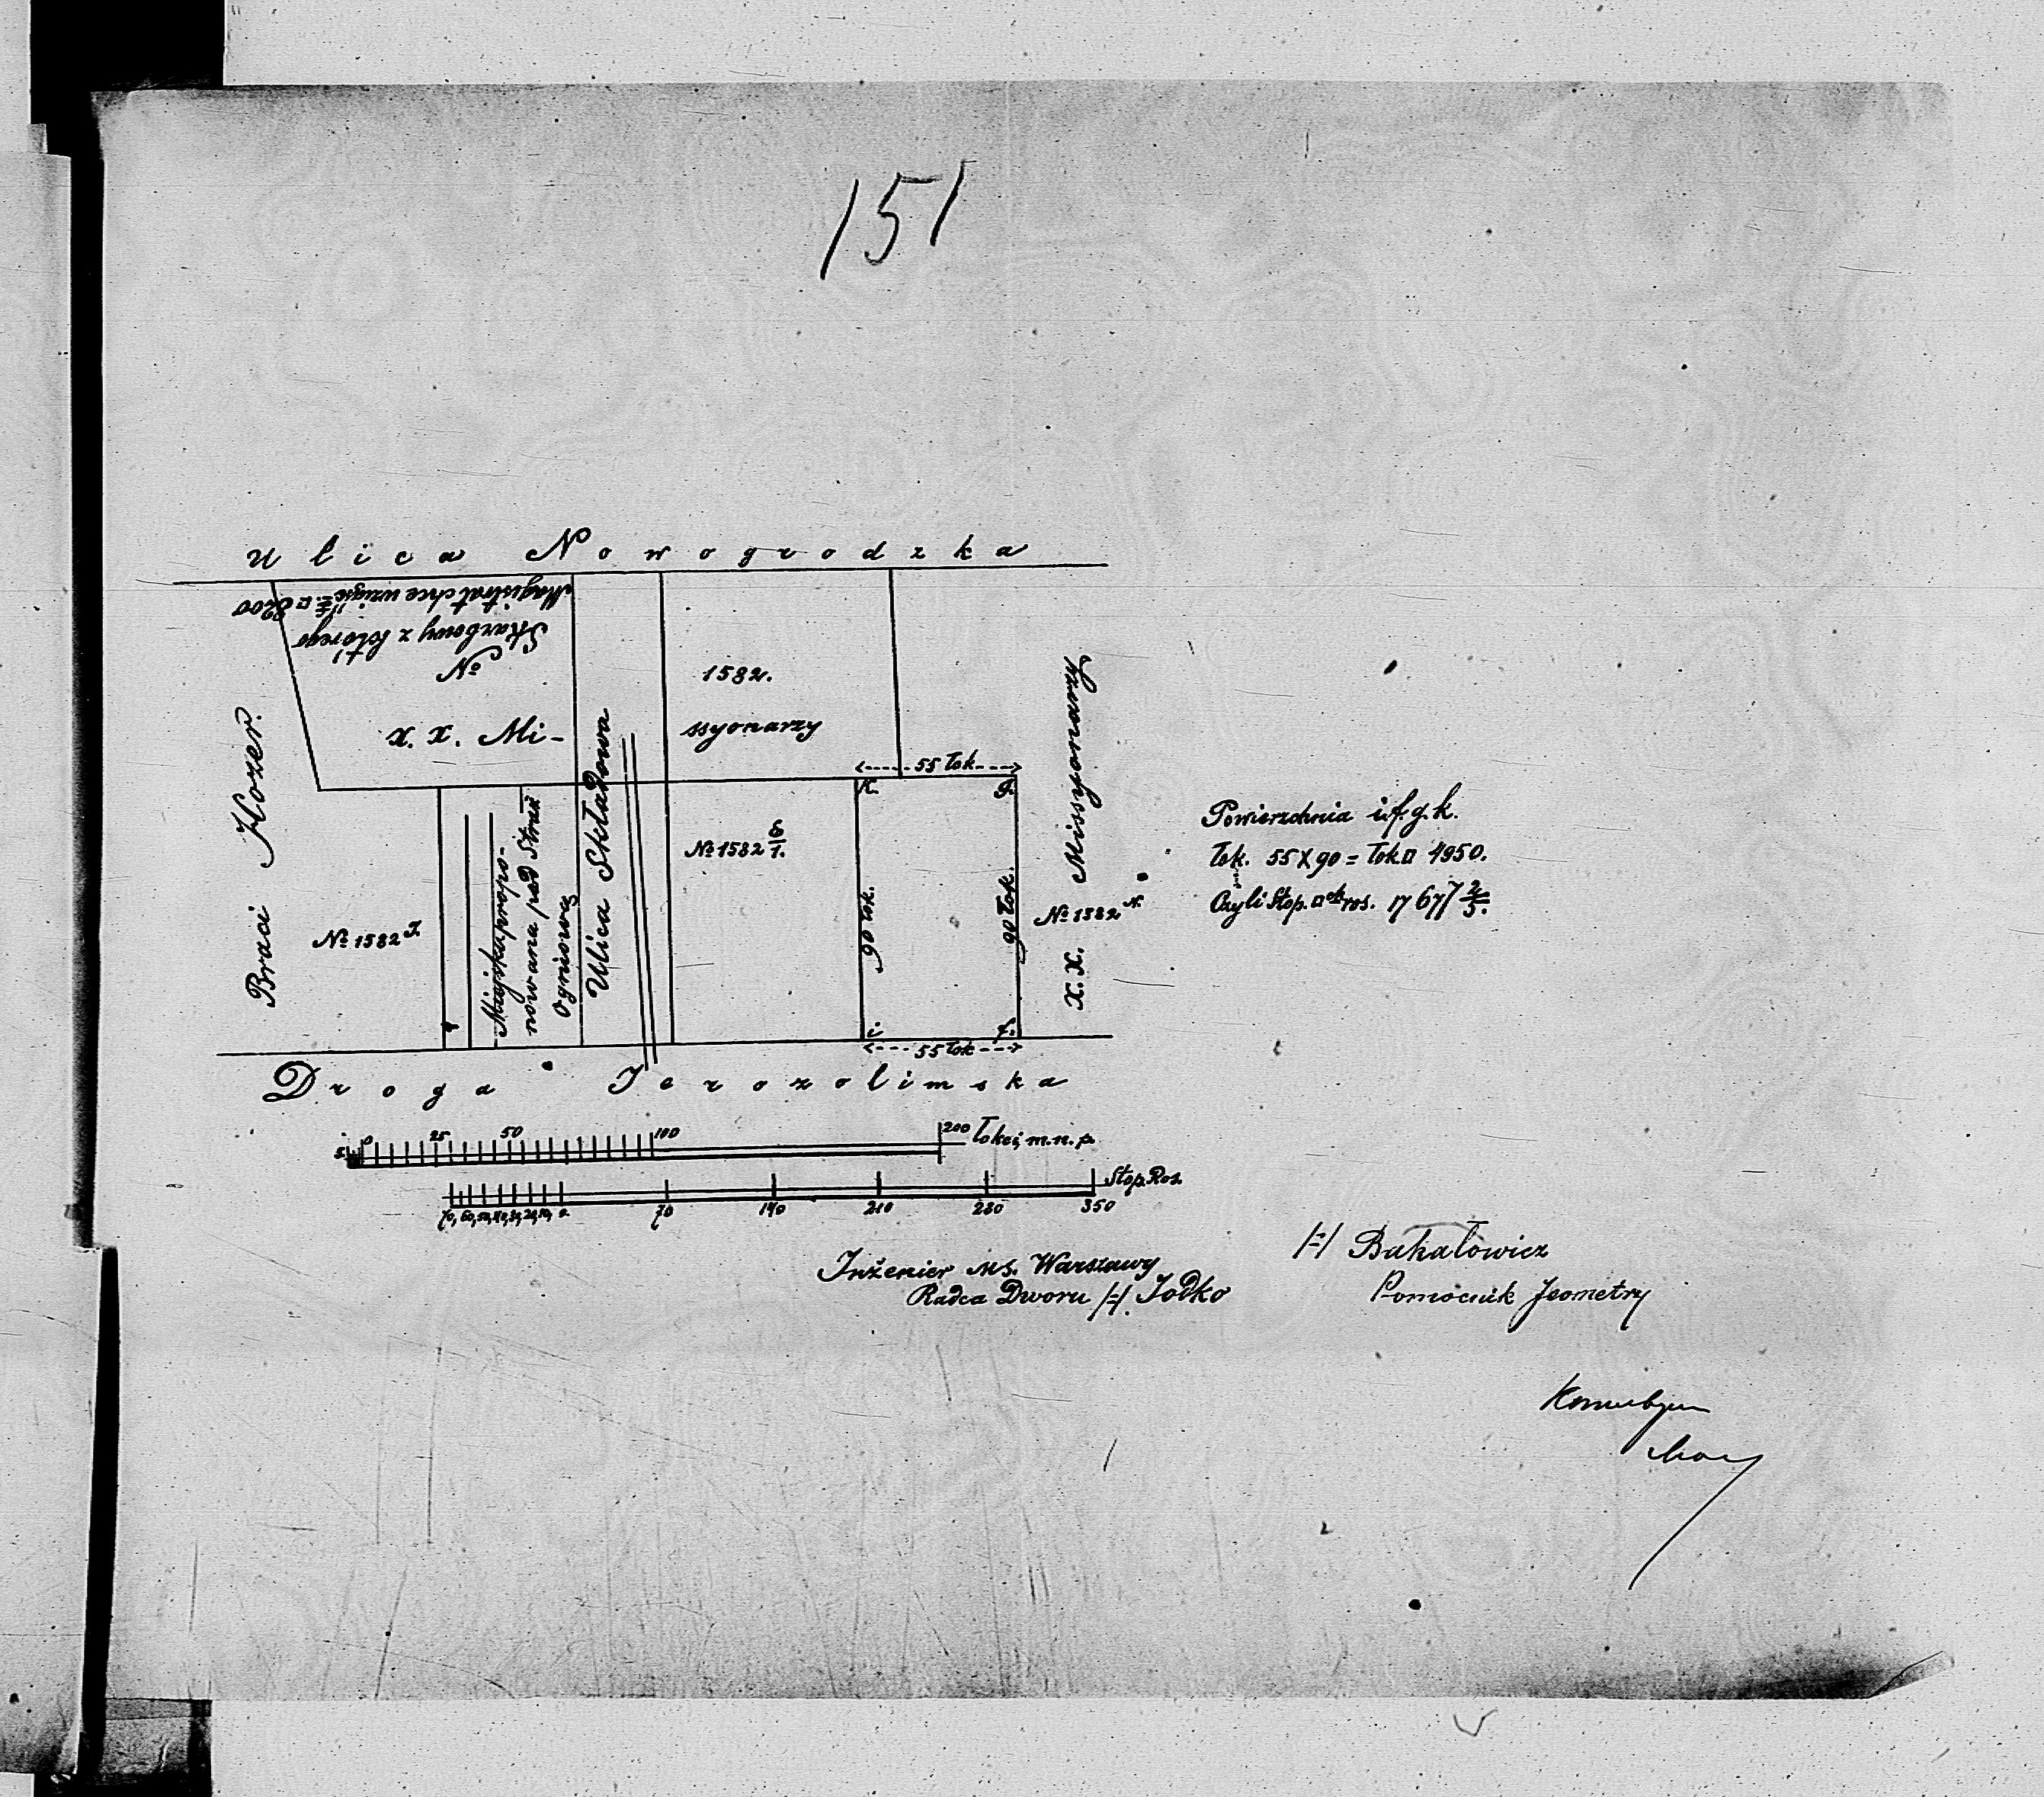 151
Ulica Nowogrodzka
№
Skarbowy z którego
Magistrat chce wziąść Ł. □ 8200
1582.
X. X. Mi-
ssyonarzy
Braci Hozer.
Ulica Składowa
X. X. Missyonarzy
55 łok.
K. g.
№ 1582 6/1.
90 łok.
90 łok.
№ 1582 N.
№ 1582 I.
Miejsk propo-
nowana pod Straż
Ogniową
i f.
55 łok
Droga Jerozolimska
Powierzchnia i.f.g.k.
łok. 55 X 90 = łok □ 4950.
Czyli Stop. □ ros. 17677 2/5.
5 0 25 50 100 200 Łokci, m.n.p.
70, 60, 50, 40, 30, 20, 10, 0 70 140 210 280 350 Stop. Ros.
Inżenier M S. Warszawy
Radca Dworu /-/ Jodko
/-/ Bakałowicz
Pomocnik Jeometry